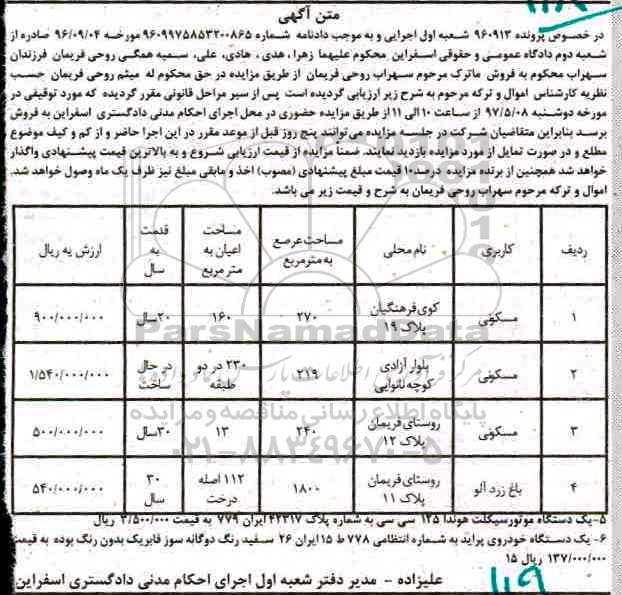 متن آگهی
در خصوص پرونده ۹۶۰۹۱۳ شعبه اول اجرایی و به موجب دادنامه شماره ۹۶۰۹۹۷۵۸۵۳۲۰۰۸۶۵ مورخه ۹۶/۰۹/۰۴ صادره از
شعبه دوم دادگاه عمومی و حقوقی اسفراین محکوم علیهما زهرا، هدی، هادی، علی، سمیه همگی روحی فریمان فرزندان
سهراب محکوم به فروش ماترک مرحوم سهراب روحی فریمان از طریق مزایده در حق محکوم له میثم روحی فریمان حسب
نظریه کارشناس اموال و ترکه مرحوم به شرح زیر ارزیابی گردیده است پس از سیر مراحل قانونی مقرر گردیده که مورد توقیفی در
مورخه دوشنبه ۹۷/۵/۰۸ از ساعت ۱۰ الی ۱۱ از طریق مزایده حضوری در محل اجرای احکام مدنی دادگستری اسفراین به فروش
برسد بنابراین متقاضیان شرکت در جلسه مزایده می توانند پنج روز قبل از موعد مقرر در این اجرا حاضر و از کم و کیف موضوع
مطلع و در صورت تمایل از مورد مزایده بازدید نمایند. ضمناً مزایده از قیمت ارزیابی شروع و به بالاترین قیمت پیشنهادی واگذار
خواهد شد همچنین از برنده مزایده درصد۱۰ قیمت مبلغ پیشنهادی (مصوب) اخذ و مابقی مبلغ نیز ظرف یک ماه وصول خواهد شد.
اموال و ترکه مرحوم سهراب روحی فریمان به شرح و قیمت زیر می باشد:
ردیف کاربری نام محلی مساحت عرصه به مترمربع مساحت اعیان به متر مربع قدمت به سال ارزش به ریال
۱ مسکونی کوی فرهنگیان پلاک ۱۹ ۲۷۰ ۱۶۰ ۲۰سال ۹۰۰/۰۰۰/۰۰۰
۲ مسکونی بلوار آزادی کوچه نانوایی ۲۱۹ ۲۳۰ در دو طبقه در حال ساخت ۱/۵۴۰/۰۰۰/۰۰۰
۳ مسکونی روستای فریمان پلاک ۱۲ ۲۴۰ ۱۳ ۳۰سال ۵۰۰/۰۰۰/۰۰۰
۴ باغ زرد آلو روستای فریمان پلاک ۱۱ ۱۸۰۰ ۱۱۲ اصله درخت ۳۰ سال ۵۴۰/۰۰۰/۰۰۰
۵-یک دستگاه موتورسیکلت هوندا ۱۲۵ سی سی به شماره پلاک ۴۲۳۱۷ ایران ۷۷۹ به قیمت ۳/۵۰۰/۰۰۰ ریال
۶- یک دستگاه خودروی پراید به شماره انتظامی ۷۷۸ ط ۱۵ ایران ۲۶ سفید رنگ دوگانه سوز فابریک بدون رنگ بوده به قیمت
۱۳۷/۰۰۰/۰۰۰ ریال ۱۵
علیزاده - مدیر دفتر شعبه اول اجرای احکام مدنی دادگستری اسفراین
ParsNamadData
پایگاه اطلاع رسانی مناقصه و مزایده
۰۲۱-۸۸۳۴۹۶۷۰-۵